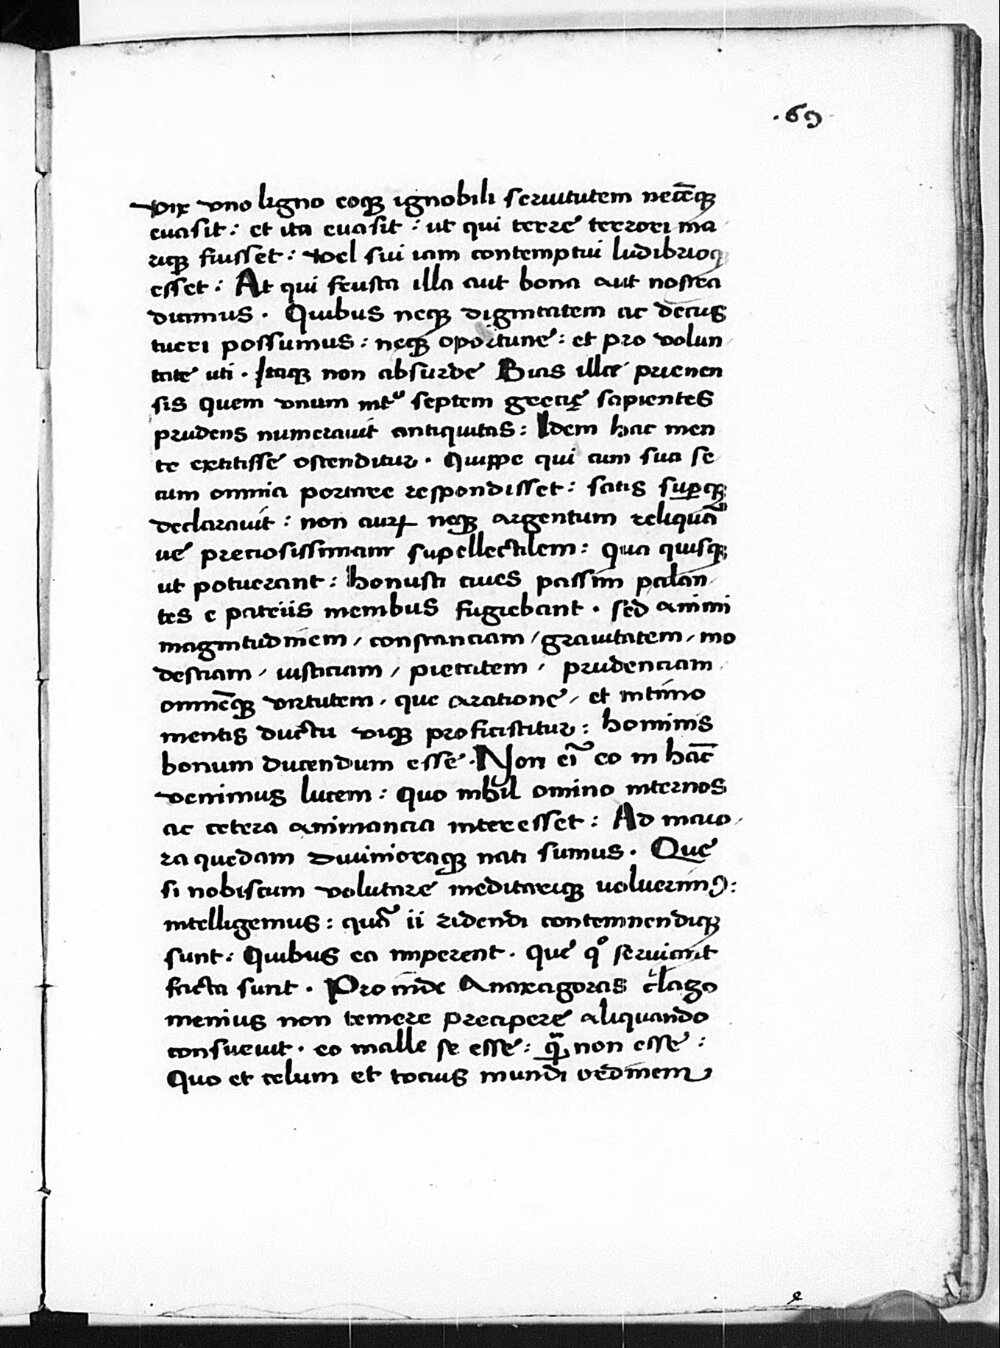 .69
vix vno ligno eoqꝫ ignobili seruitutem necēqꝫ
euasit : et ita euasit : ut qui terre terrori ma
riqꝫ fuisset : vel sui iam contemptui ludibrioqꝫ
esset : At qui frusta illa aut bona aut nostra
dicimus . Quibus neqꝫ dignitatem ac decus
tueri possumus : neqꝫ oportune : et pro volun
tate uti . Itaqꝫ non absurde Bias ille prienen
sis quem vnum int᷑ septem grecię sapientes
prudens numerauit antiquitas : Idem hac men
te extitisse ostenditur . Quippe qui cum sua se
cum omnia portare respondisset : satis suꝑqꝫ
declarauit : non auꝝ neqꝫ argentum reliquā
ue preciosissimam supellectilem : qua quisqꝫ
ut potuerant : honusti ciues passim palan
tes e patriis menibus fugiebant . sed animi
magnitudinem / constanciam / grauitatem / mo
destiam / iusticiam / pietatem / prudenciam
omnēqꝫ virtutem . que aratione / et intimo
mentis ductu vsqꝫ proficistitur : hominis
bonum ducendum esse . Non eī eo in hāc
venimus lucem : quo nihil omino internos
ac cetera animancia interesset : Ad maio
ra quedam diuinioraqꝫ nati sumus . Que
si nobiscum volutare meditariqꝫ uoluerimꝰ :
intelligemus : quā ii ridendi contemnendiqꝫ
sunt : Quibus ea imperent . que qͦ seruiant
facta sunt . Pro inde Anaxagoras clazo
menius non temere precipere aliquando
consueuit . eo malle se esse : qͣꝫ non esse :
Quo et celum et tocius mundi ordinem
e